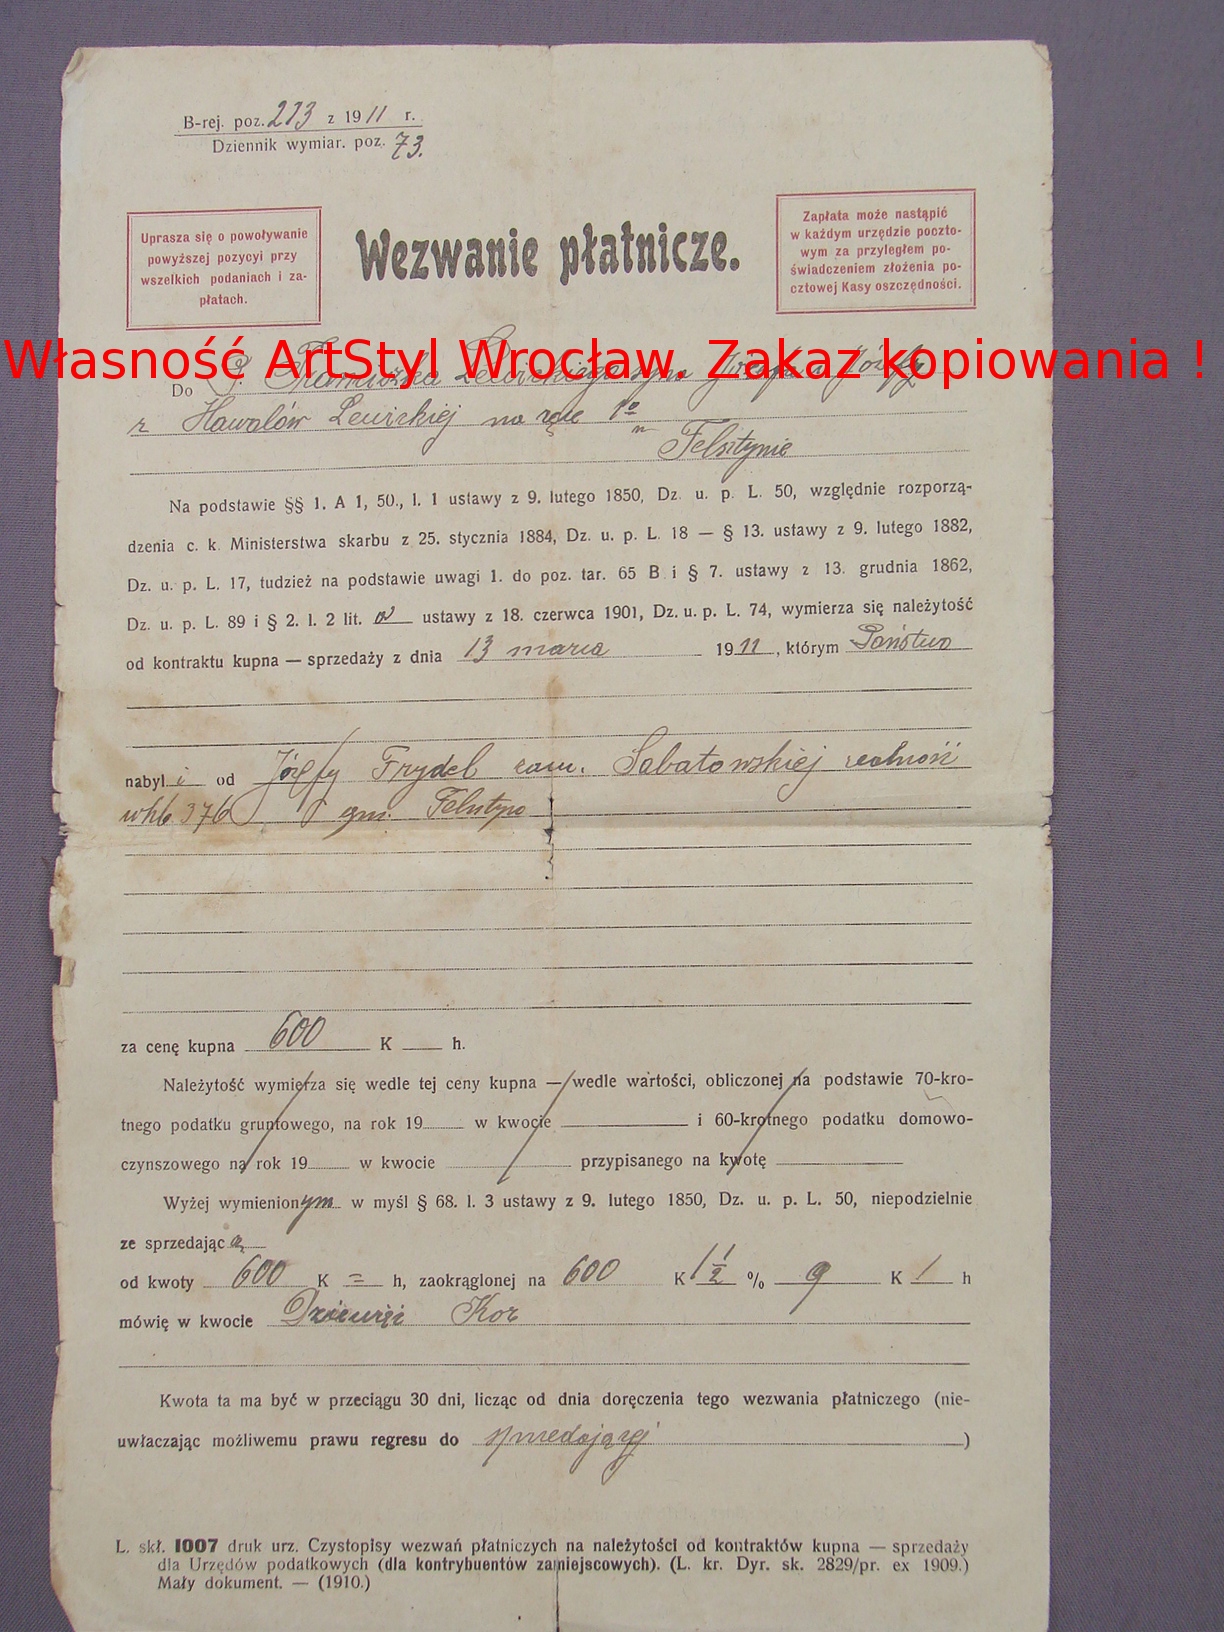 B-rej. poz. 213 z 1911 r.
Dziennik wymiar. poz. 73.
Uprasza się o powoływanie
powyższej pozycyi przy
wszelkich podaniach i za-
płatach.
Wezwanie płatnicze.
Zapłata może nastąpić
w każdym urzędzie poczto-
wym za przyległem po-
świadczeniem złożenia po-
cztowej Kasy oszczędności.
Własność ArtStyl Wrocław. Zakaz kopiowania !
Do P. Franciszka Lewickiego Józefa i Józefy
z Hawalów Lewickiej na ręce 1º
w Felsztynie
Na podstawie §§ 1. A 1, 50., l. 1 ustawy z 9. lutego 1850, Dz. u. p. L. 50, względnie rozporzą-
dzenia c. k. Ministerstwa skarbu z 25. stycznia 1884, Dz. u. p. L. 18 — § 13. ustawy z 9. lutego 1882,
Dz. u. p. L. 17, tudzież na podstawie uwagi 1. do poz. tar. 65 B i § 7. ustawy z 13. grudnia 1862,
Dz. u. p. L. 89 i § 2. l. 2 lit. a ustawy z 18. czerwca 1901, Dz. u. p. L. 74, wymierza się należytość
od kontraktu kupna — sprzedaży z dnia 13 marca 1911, którym Państwo
nabyli od Józefy Frydel zam. Sabatowskiej realność
whl. 376 gm. Felsztyn
za cenę kupna 600 K h.
Należytość wymierza się wedle tej ceny kupna — wedle wartości, obliczonej na podstawie 70-kro-
tnego podatku gruntowego, na rok 19 w kwocie i 60-krotnego podatku domowo-
czynszowego na rok 19 w kwocie przypisanego na kwotę
Wyżej wymienionym w myśl § 68. l. 3 ustawy z 9. lutego 1850, Dz. u. p. L. 50, niepodzielnie
ze sprzedającą
od kwoty 600 K = h, zaokrąglonej na 600 K 1 1/2 % 9 K / h
mówię w kwocie Dziewięć Kor
Kwota ta ma być w przeciągu 30 dni, licząc od dnia doręczenia tego wezwania płatniczego (nie-
uwłaczając możliwemu prawu regresu do sprzedającej )
L. skł. 1007 druk urz. Czystopisy wezwań płatniczych na należytości od kontraktów kupna — sprzedaży
dla Urzędów podatkowych (dla kontrybuentów zamiejscowych). (L. kr. Dyr. sk. 2829/pr. ex 1909.)
Mały dokument. — (1910.)